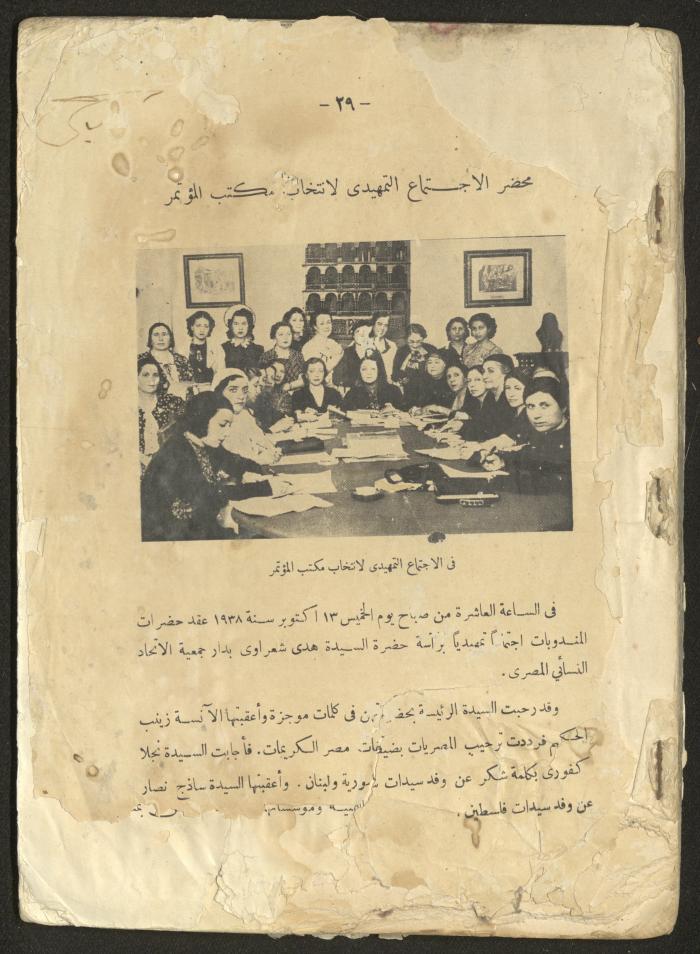 - ٢٩ -
محضر الاجتماع التمهيدى لانتخاب مكتب المؤتمر
فى الاجتماع التمهيدى لانتخاب مكتب المؤتمر
فى الساعة العاشرة من صباح يوم الخميس ١٣ اكتوبر سنة ١٩٣٨ عقد حضرات
المندوبات اجتماعاً تمهيدياً برآسة حضرة السيدة هدى شعراوى بدار جمعية الاتحاد
النسائي المصرى .
وقد رحبت السيدة الرئيسة فى كلمات موجزة وأعقبتها الآنسة زينب
الحكيم فرددت ترحيب المصريات بضيفات مصر الكريمات . فأجابت السيدة نجلا
كفورى بكلمة شكر عن وفد سيدات سورية ولبنان . وأعقبتها السيدة ساذج نصار
عن وفد سيدات فلسطين .
ومؤسساتها